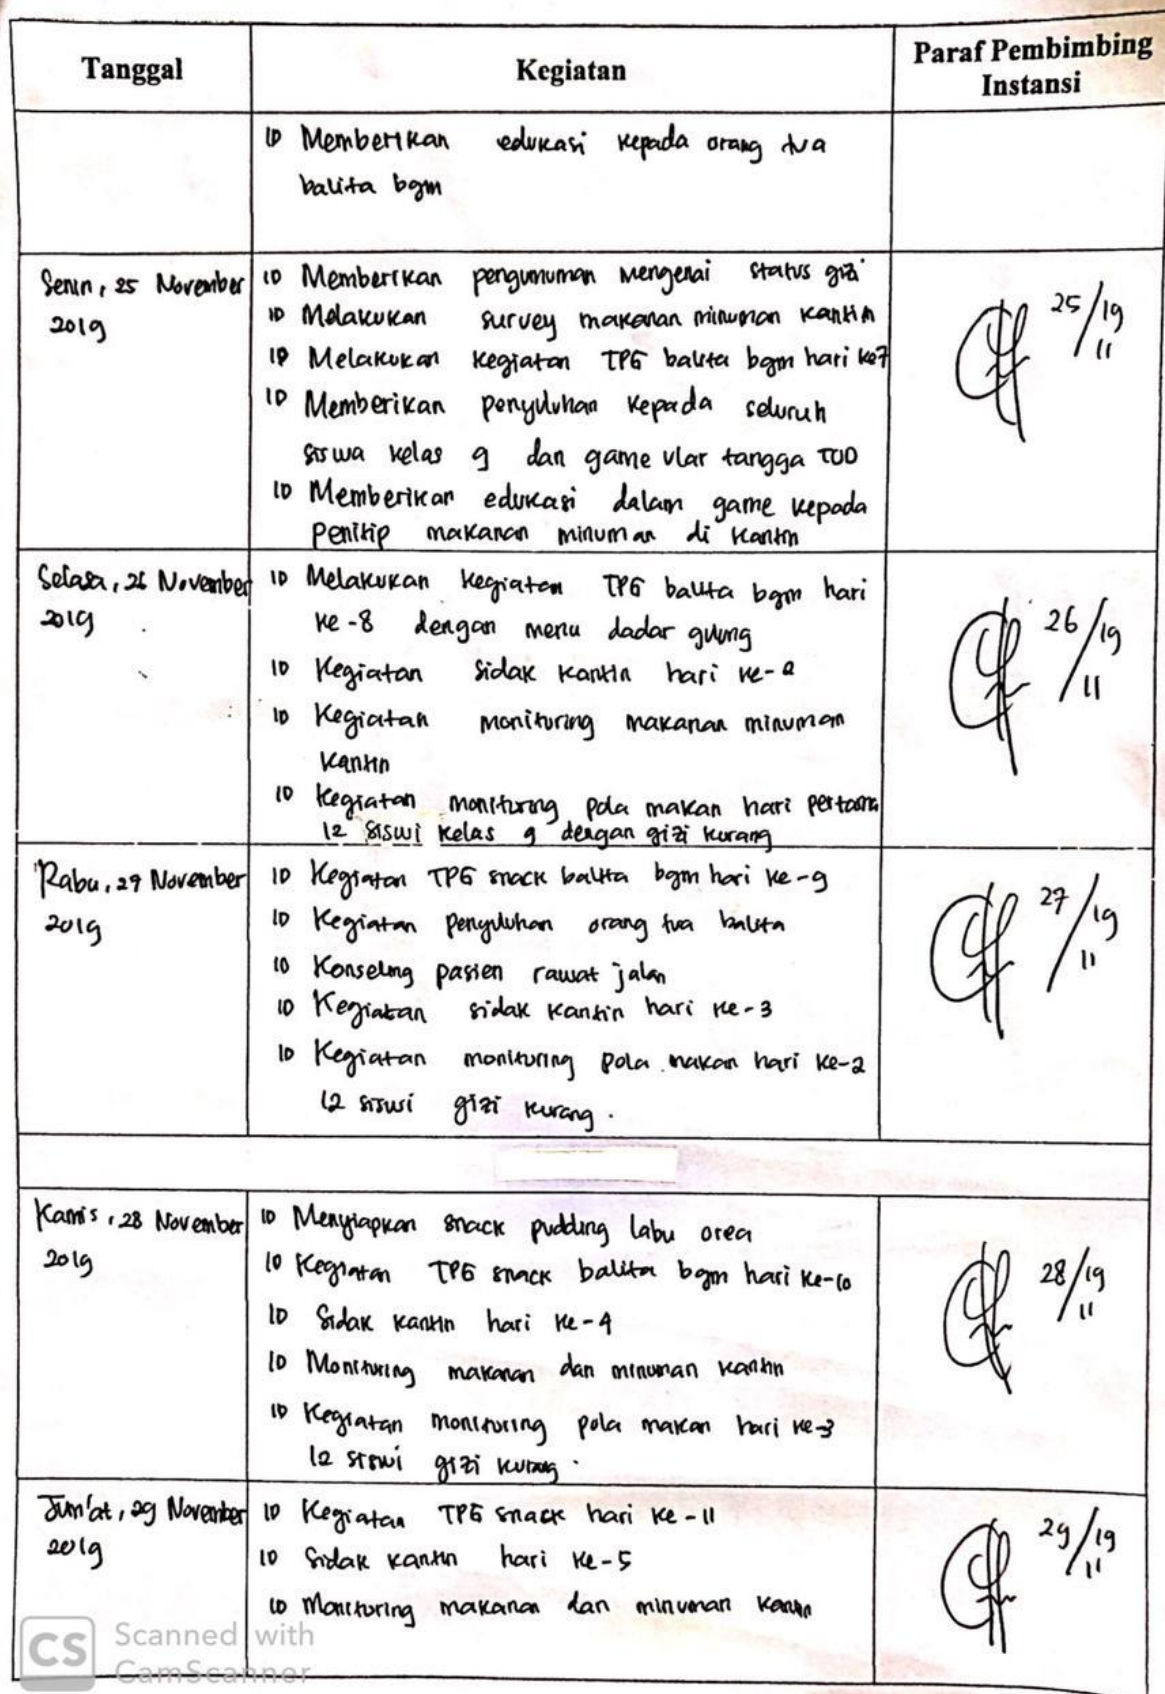 Tanggal
Kegiatan
Paraf Pembimbing
Instansi
Memberikan edukasi kepada orang tua
balita bgm
Senin, 25 November
2019
Memberikan pengumuman mengenai status gizi
Melakukan survey makanan minuman kantin
Melakukan kegiatan TPG balita bgm hari ke7
Memberikan penyuluhan kepada seluruh
siswa kelas 9 dan game ular tangga TOD
Memberikan edukasi dalam game kepada
Penitip makanan minuman di kantin
25/19
11
Selasa, 26 November
2019
Melakukan kegiatan TPG balita bgm hari
ke-8 dengan menu dadar gulung
Kegiatan sidak kantin hari ke-2
Kegiatan monituring makanan minuman
kantin
Kegiatan monituring pola makan hari pertama
12 siswi kelas 9 dengan gizi kurang
26/19
11
Rabu, 27 November
2019
Kegiatan TPG snack balita bgm hari ke-9
Kegiatan penyuluhan orang tua balita
Konseling pasien rawat jalan
Kegiatan sidak kantin hari ke-3
Kegiatan monituring pola makan hari ke-2
12 siswi gizi kurang.
27/19
11
Kamis, 28 November
2019
Menyiapkan snack pudding labu oreo
Kegiatan TPG snack balita bgm hari ke-10
Sidak kantin hari ke-4
Monituring makanan dan minuman kantin
Kegiatan monituring pola makan hari ke-3
12 siswi gizi kurang.
28/19
11
Jum'at, 29 November
2019
Kegiatan TPG snack hari ke-11
Sidak kantin hari ke-5
Monituring makanan dan minuman kantin
29/19
11
CS Scanned with
CamScanner